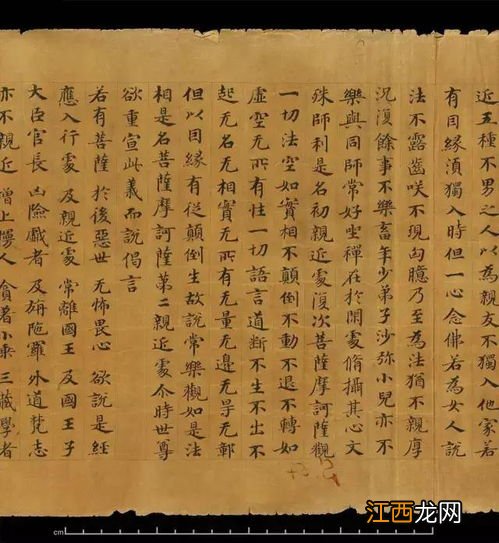 近五種不男之人以為親友不獨入他家若
有因緣須獨入時但一心念佛若為女人說
法不露齒咲不現匈臆乃至為法猶不親厚
況復餘事不樂畜年少弟子沙弥小兒亦不
樂與同師常好坐禪在於閑處脩攝其心文
殊師利是名初親近處復次菩薩摩訶薩觀
一切法空如實相不顛倒不動不退不轉如
虛空无所有性一切語言道斷不生不出不
起无名无相實无所有无量无邊无㝵无鄣
但以因緣有從顛倒生故說常樂觀如是法
相是名菩薩摩訶薩第二親近處尒時世尊
欲重宣此義而說偈言
若有菩薩 於後惡世 无怖畏心 欲說是經
應入行處 及親近處 常離國王 及國王子
大臣官長 凶險戲者 及旃陁羅 外道梵志
亦不親近 增上慢人 貪著小乘 三藏學者
cm
江西龙网